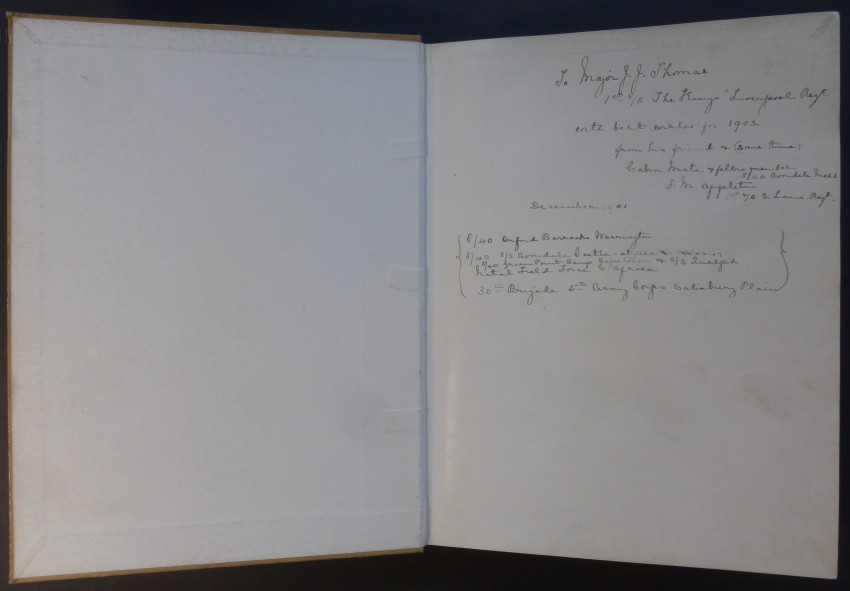 To Major J. J. Thomas
The Kings' Liverpool Regt
with best wishes for 1902
from his friend & (some time)
Cabin Mate & fellow member
Avondale Mess
F. M. Appleton
S. Lanc. Regt.
December 1901
Orford Barracks Warrington
S/S Avondale Castle - at sea &
Green Point Camp Capetown & S/S
Natal Field Force S. Africa
30th Brigade 5th Army Corps Salisbury Plain